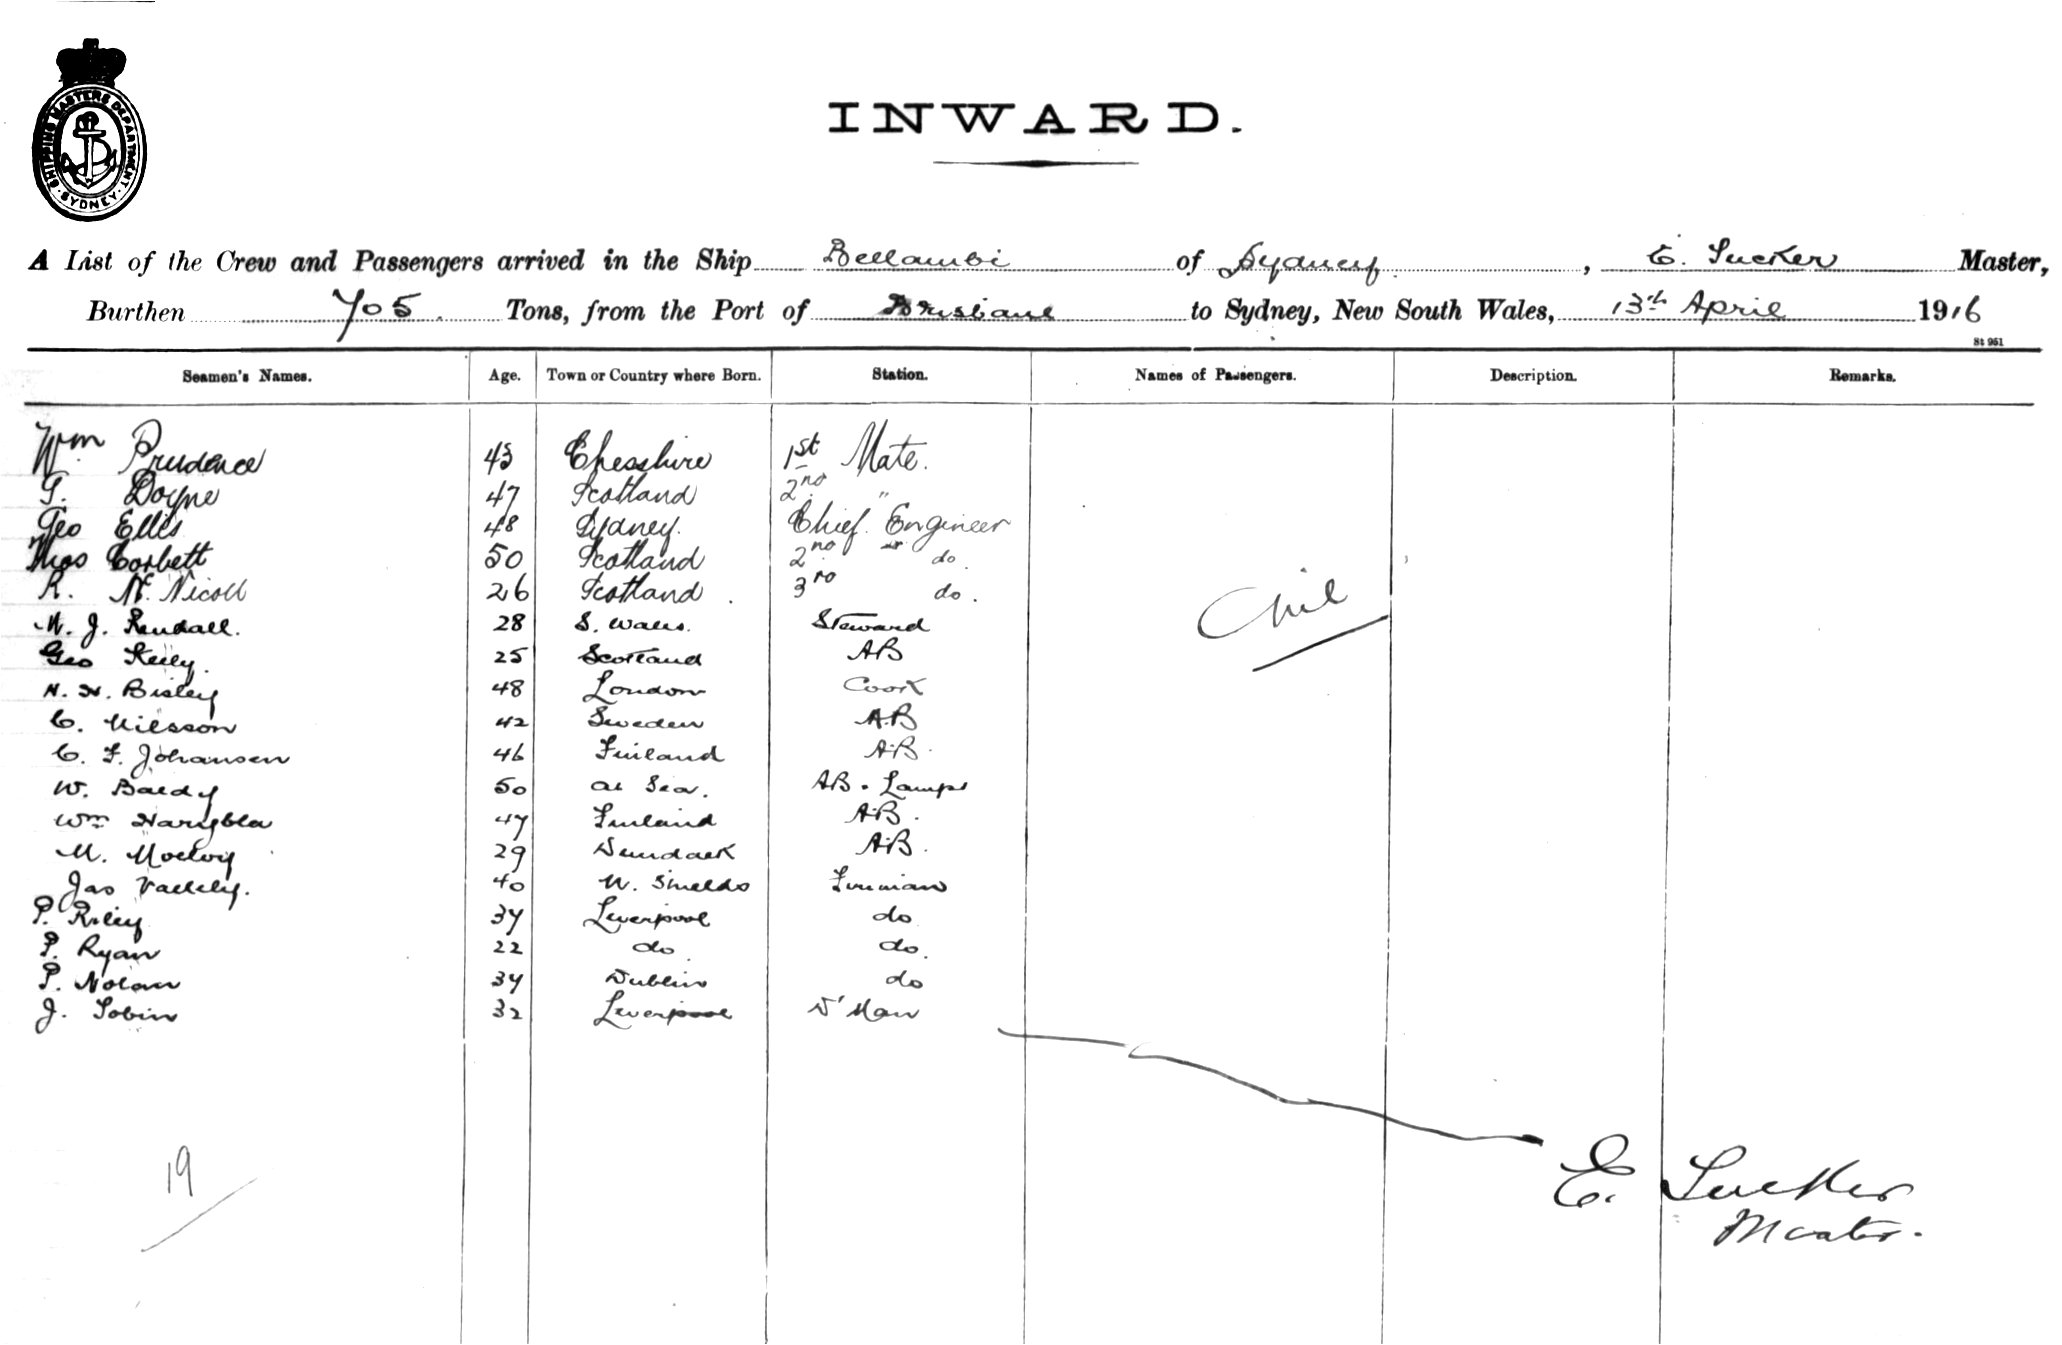 SHIPPING MASTERS DEPARTMENT. SYDNEY
INWARD.
A List of the Crew and Passengers arrived in the Ship Bellambi of Sydney, E. Tucker Master,
Burthen 705 Tons, from the Port of Brisbane to Sydney, New South Wales, 13th April 1916
St 951
Seamen's Names. Age. Town or Country where Born. Station. Names of Passengers. Description. Remarks.
Wm Prudence 43 Chesshire 1st Mate.
G. Doyne 47 Scotland 2nd "
Geo Ellis 48 Sydney. Chief Engineer
Thos Corbett 50 Scotland 2nd do.
R. Mc. Nicoll 26 Scotland. 3rd do.
J. Randall. 28 S. Wales. Steward
Nil
Geo Keily. 25 Scotland AB
H. H. Bisley 48 London Cook
C. Nilsson 42 Sweden AB
C. F. Johansen 46 Finland AB.
W. Baldy 50 at Sea. AB. Lamps
Wm 47 Finland AB.
M. McEvoy 29 Dundalk AB.
Jas 40 N. Shields Fireman
P. Riley 37 Liverpool do
P. Ryan 22 do. do.
P. Nolan 34 Dublin do
J. Tobin 32 Liverpool D'Man
19
E. Tucker
Master.